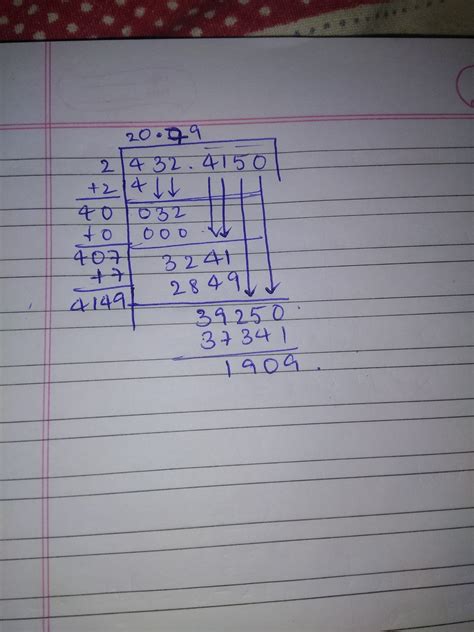 20.79
2 432.4150
+2 4
40 032
+0 000
407 3241
+7 2849
4149 39250
37341
1909.